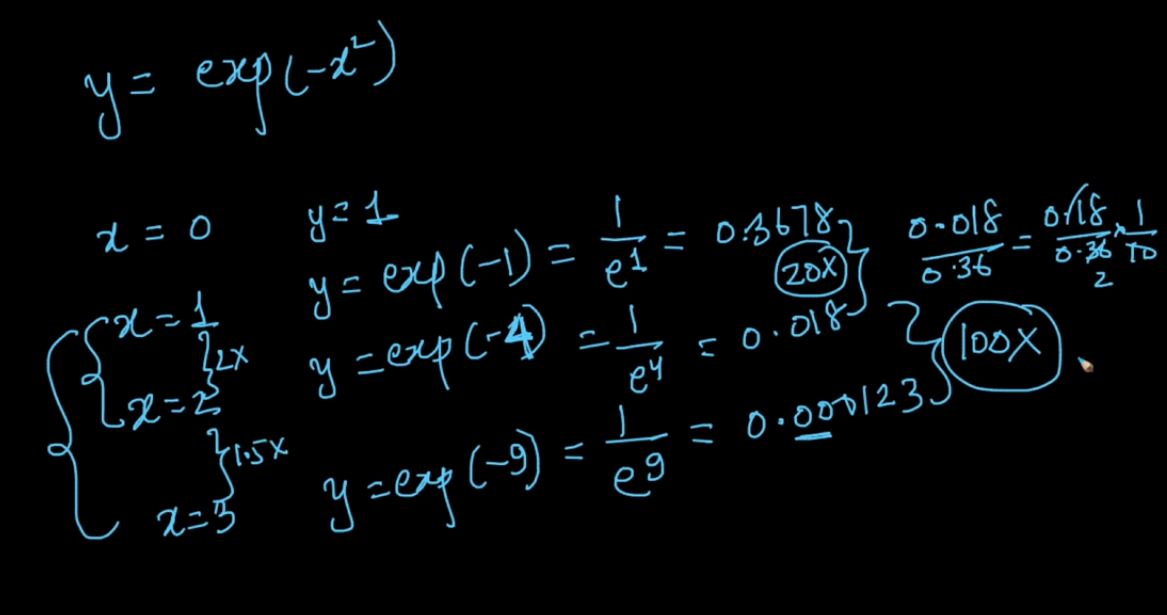 y = exp(-x²)
x = 0 y = 1
x = 1 y = exp(-1) = 1/e¹ = 0.3678 20X 0.018/0.36 = 0.18/0.36 × 1/10 2
2X
x = 2 y = exp(-4) = 1/e⁴ = 0.018 100X
1.5X
x = 3 y = exp(-9) = 1/e⁹ = 0.000123